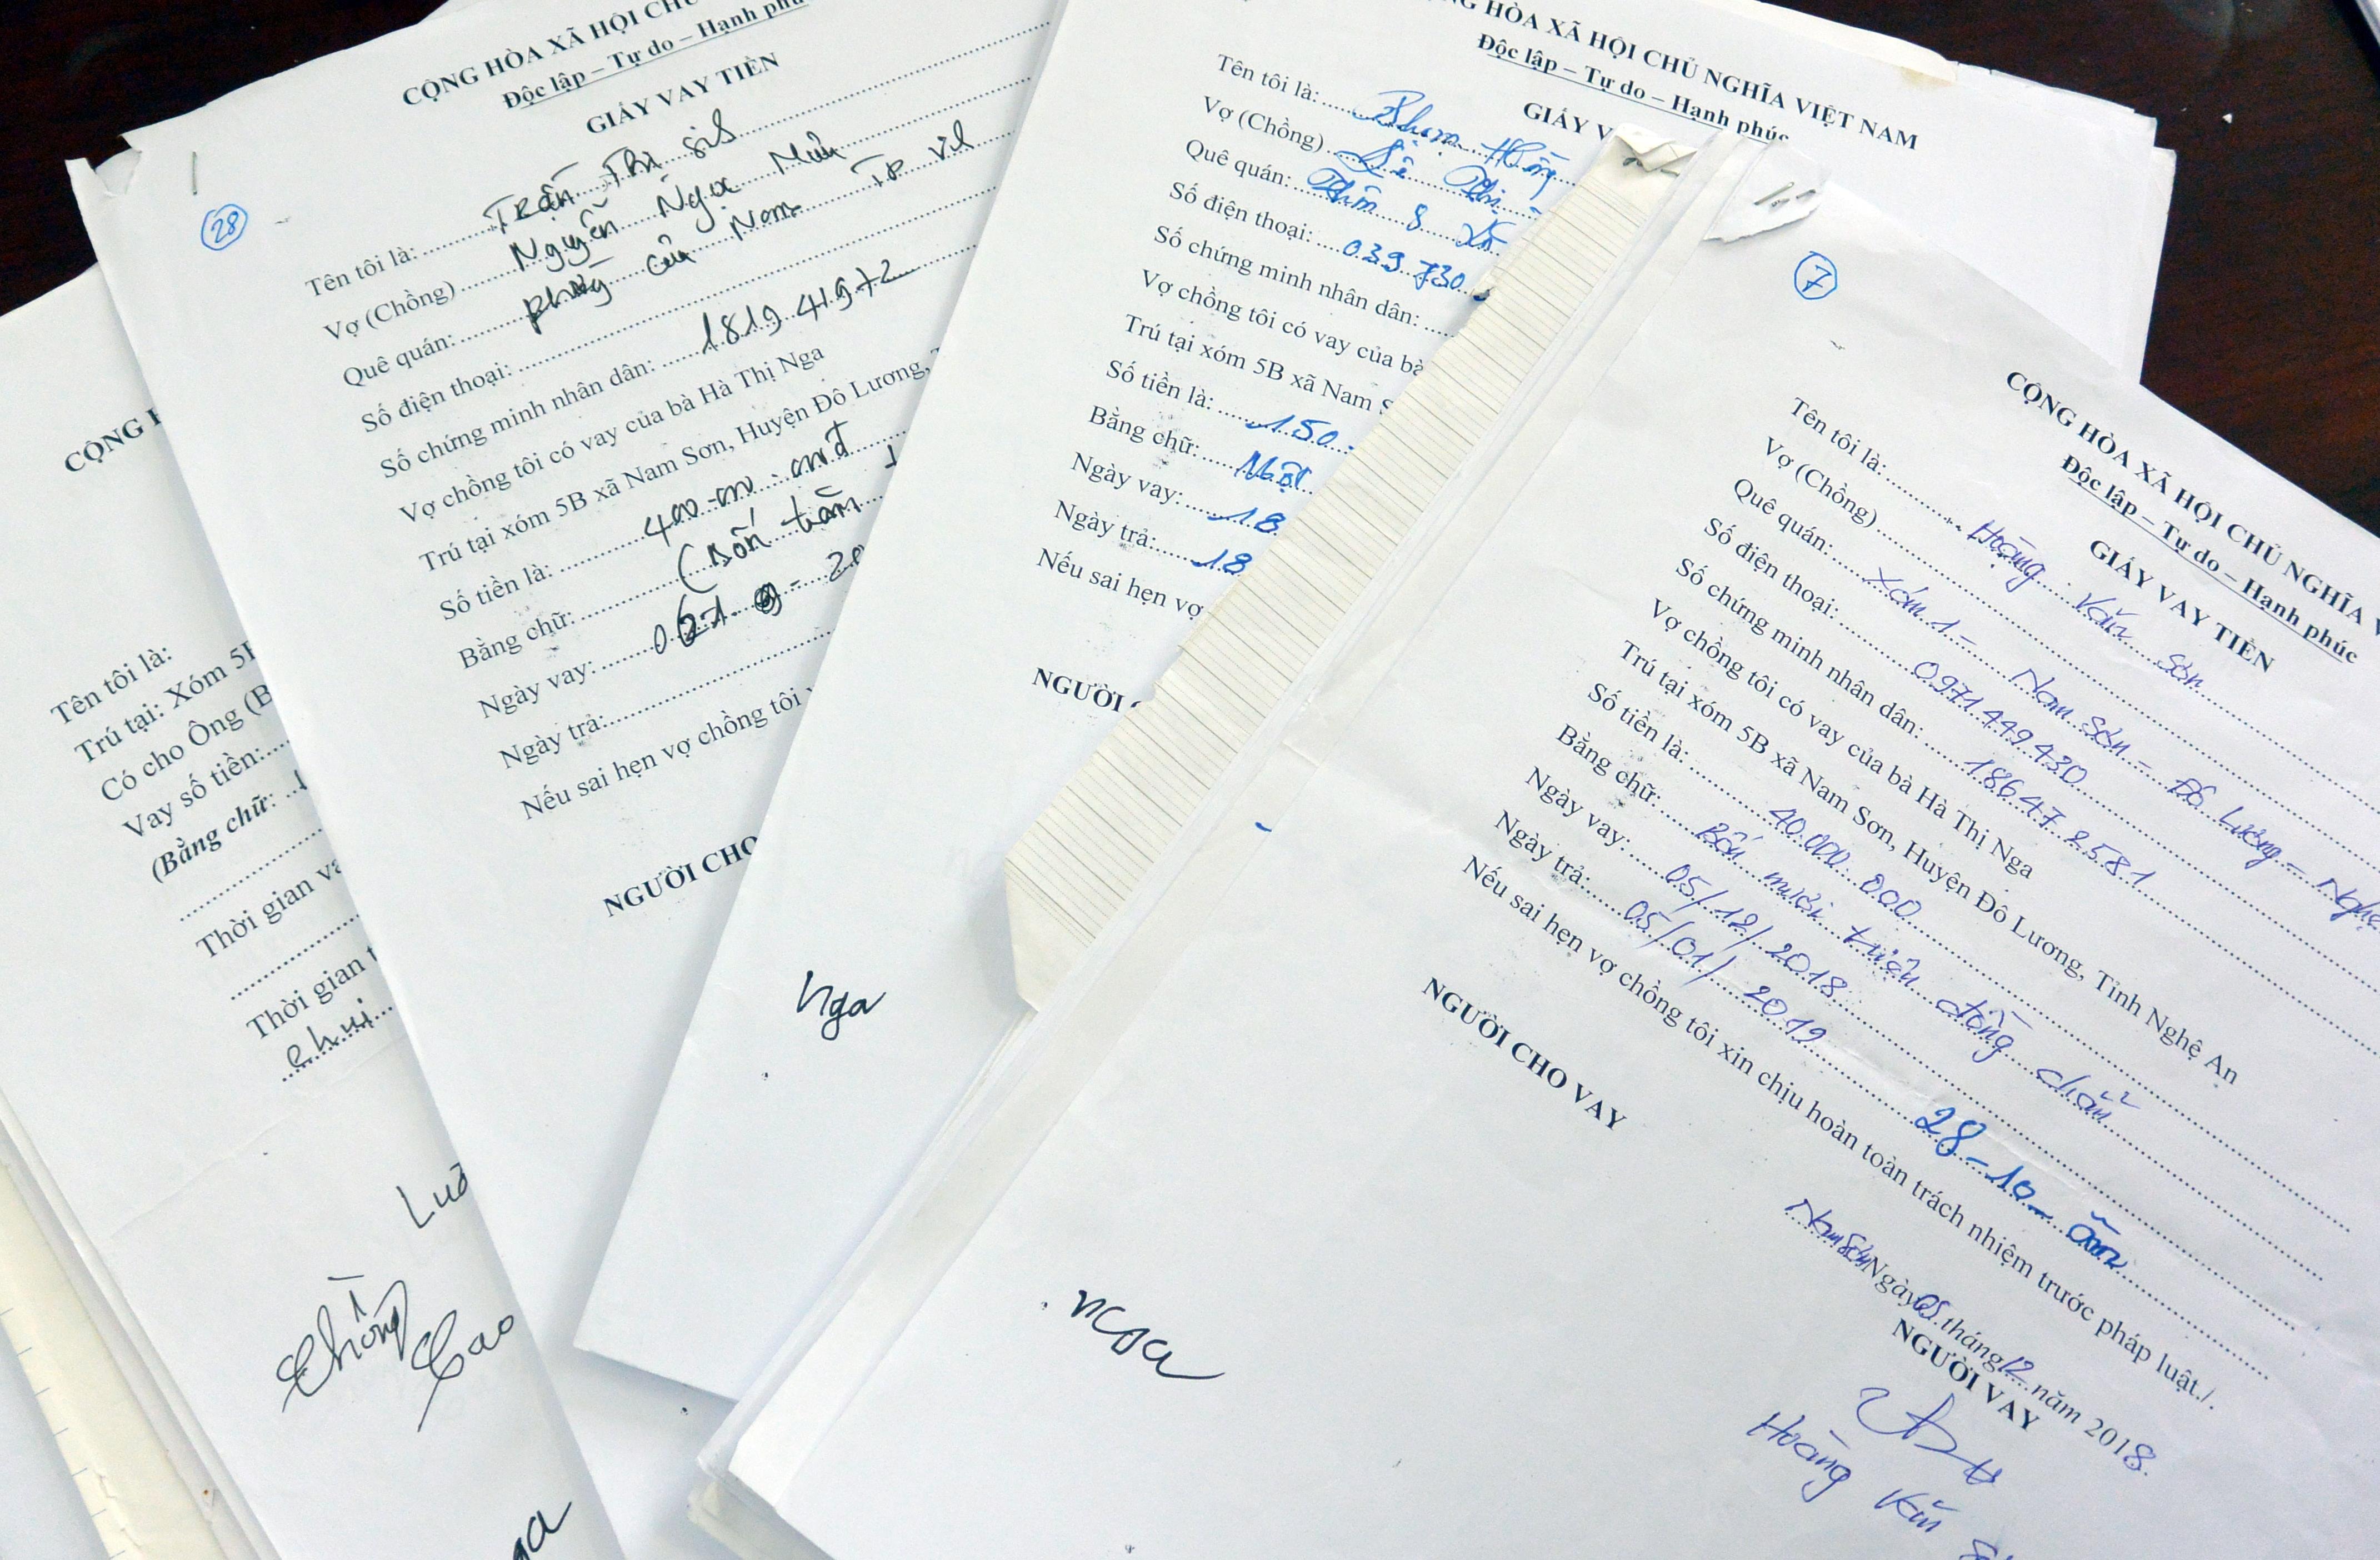 CỘNG H
Tên tôi là:
Trú tại: Xóm 5B
Có cho Ông (B
Vay số tiền:
(Bằng chữ:
Thời gian va
Thời gian t
Chồng
Cao
CỘNG HÒA XÃ HỘI CHỦ
Độc lập – Tự do – Hạnh phú
GIẤY VAY TIỀN
28
Tên tôi là: Trần Thị
Vợ (Chồng) Nguyễn Ngọc
Quê quán: phường cửa Nam TP
Số điện thoại:
Số chứng minh nhân dân: 181941972
Vợ chồng tôi có vay của bà Hà Thị Nga
Trú tại xóm 5B xã Nam Sơn, Huyện Đô Lương, T
Số tiền là:
Bằng chữ: (Bốn trăm
Ngày vay:
Ngày trả:
Nếu sai hẹn vợ chồng tôi
NGƯỜI CHO
Nga
NG HÒA XÃ HỘI CHỦ NGHĨA VIỆT NAM
Độc lập – Tự do – Hạnh phúc
GIẤY V
Tên tôi là: Phạm Hồng
Vợ (Chồng) Lê Thị
Quê quán: Xóm 8 Xã
Số điện thoại: 039 730
Số chứng minh nhân dân:
Vợ chồng tôi có vay của bà
Trú tại xóm 5B xã Nam S
Số tiền là: 150
Bằng chữ: Một
Ngày vay: 18
Ngày trả: 18
Nếu sai hẹn vợ
NGƯỜI C
7
CỘNG HÒA XÃ HỘI CHỦ NGHĨA V
Độc lập – Tự do – Hạnh phúc
GIẤY VAY TIỀN
Tên tôi là: Hoàng Văn Sơn
Vợ (Chồng)
Quê quán: Xóm 1 – Nam Sơn – Đô Lương – Nghệ
Số điện thoại: 0971449430
Số chứng minh nhân dân: 186472581
Vợ chồng tôi có vay của bà Hà Thị Nga
Trú tại xóm 5B xã Nam Sơn, Huyện Đô Lương, Tỉnh Nghệ An
Số tiền là: 40.000.000
Bằng chữ: Bốn mươi triệu đồng chẵn
Ngày vay: 05/12/2018
Ngày trả: 05/01/2019 28-10-âm
Nếu sai hẹn vợ chồng tôi xin chịu hoàn toàn trách nhiệm trước pháp luật./.
Nam Sơn Ngày 05 tháng 12 năm 2018.
NGƯỜI CHO VAY
NGƯỜI VAY
nga
Hoàng Văn S